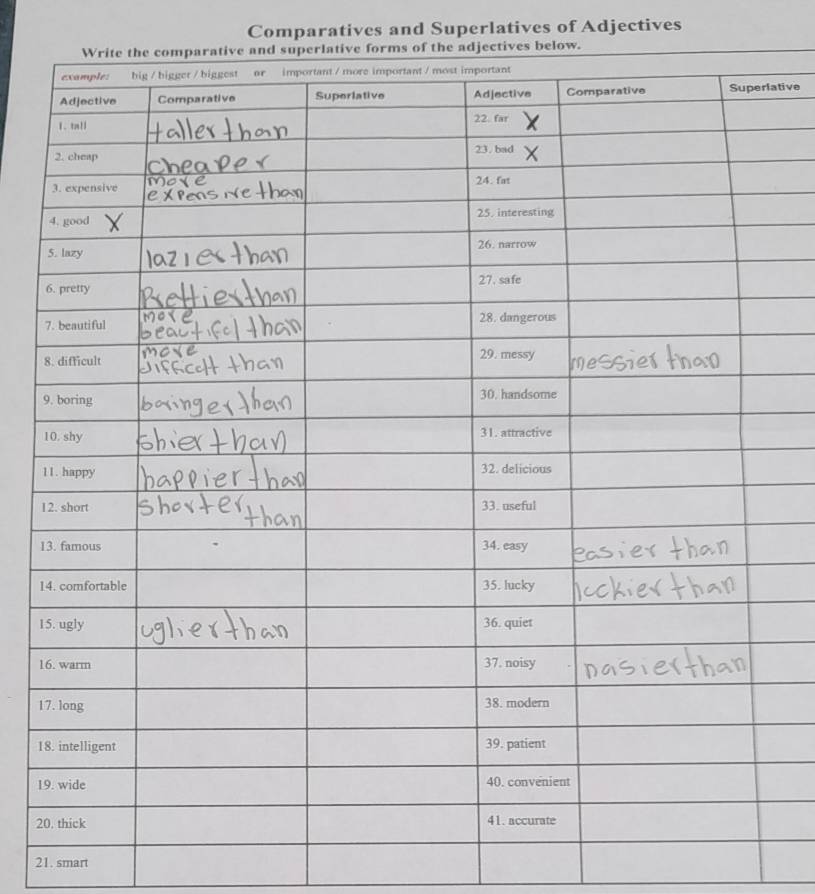 Comparatives and Superlatives of Adjectives
Write the comparative and superlative forms of the adjectives below.
example: big / bigger / biggest or important / more important / most important
Adjective Comparative Superlative Adjective Comparative Superlative
1. tall taller than 22. far X
2. cheap cheaper 23. bad X
3. expensive more expensive than 24. fat
4. good X 25. interesting
5. lazy lazier than 26. narrow
6. pretty Prettier than 27. safe
7. beautiful more beautifcl than 28. dangerous
8. difficult more difficclt than 29. messy messier than
9. boring boringer than 30. handsome
10. shy shier than 31. attractive
11. happy happier than 32. delicious
12. short shorter than 33. useful
13. famous 34. easy easier than
14. comfortable 35. lucky lcckier than
15. ugly uglier than 36. quiet
16. warm 37. noisy nasier than
17. long 38. modern
18. intelligent 39. patient
19. wide 40. convenient
20. thick 41. accurate
21. smart